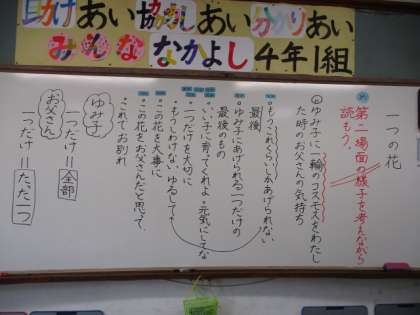 助けあい 協力しあい かかりあい
みんな なかよし 4年1組
一つの花
め 第二場面の様子を考えながら
読もう。
ゆみ子に一輪のコスモスをわたし
た時のお父さんの気持ち
・もうこれくらいしかあげられない
最後
・ゆみ子にあげられる一つだけの
最後のもの
・いい子に育ってくれよ・元気にしてな
・一つだけを大切に
・もうしわけない、ゆるして
・この花を大事に
・この花をお父さんだと思って、
・これでお別れ
ゆみ子
一つだけ=全部
お父さん
一つだけ=たった一つ